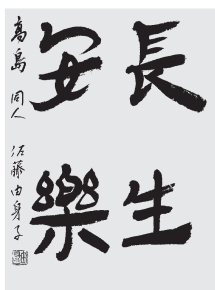 長生
安樂
高島 同人 佐藤由身子